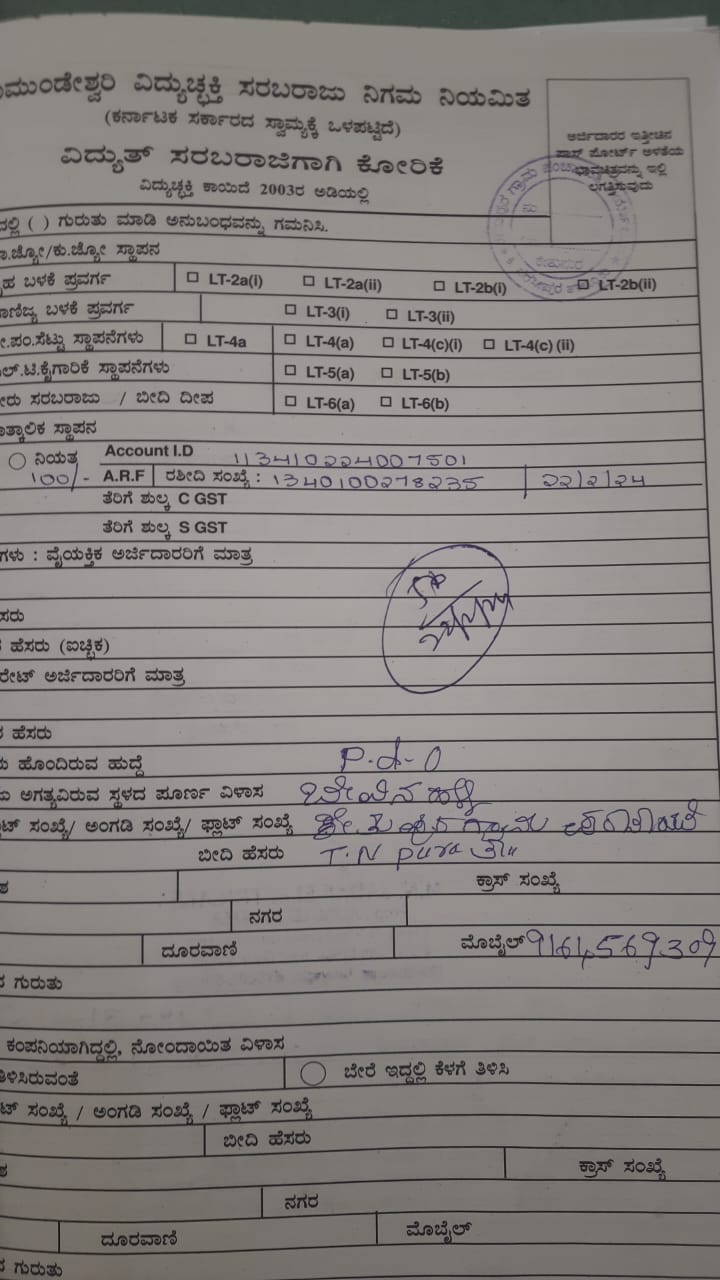 ಮುಂಡೇಶ್ವರಿ ವಿದ್ಯುಚ್ಛಕ್ತಿ ಸರಬರಾಜು ನಿಗಮ ನಿಯಮಿತ
(ಕರ್ನಾಟಕ ಸರ್ಕಾರದ ಸ್ವಾಮ್ಯಕ್ಕೆ ಒಳಪಟ್ಟಿದೆ)
ವಿದ್ಯುತ್ ಸರಬರಾಜಿಗಾಗಿ ಕೋರಿಕೆ
ವಿದ್ಯುಚ್ಛಕ್ತಿ ಕಾಯಿದೆ 2003ರ ಅಡಿಯಲ್ಲಿ
ಅರ್ಜಿದಾರರ ಇತ್ತೀಚಿನ
ಪಾಸ್ ಪೋರ್ಟ್ ಅಳತೆಯ
ಭಾವಚಿತ್ರವನ್ನು ಇಲ್ಲಿ
ಲಗತ್ತಿಸುವುದು
ದಲ್ಲಿ ( ) ಗುರುತು ಮಾಡಿ ಅನುಬಂಧವನ್ನು ಗಮನಿಸಿ.
ಜ್ಯೋ/ಕು.ಜ್ಯೋ ಸ್ಥಾಪನ
ಹ ಬಳಕೆ ಪ್ರವರ್ಗ LT-2a(i) LT-2a(ii) LT-2b(i) LT-2b(ii)
ಣಿಜ್ಯ ಬಳಕೆ ಪ್ರವರ್ಗ LT-3(i) LT-3(ii)
ಪಂ.ಸೆಟ್ಟು ಸ್ಥಾಪನೆಗಳು LT-4a LT-4(a) LT-4(c)(i) LT-4(c) (ii)
ಲ್.ಟಿ.ಕೈಗಾರಿಕೆ ಸ್ಥಾಪನೆಗಳು LT-5(a) LT-5(b)
ರು ಸರಬರಾಜು / ಬೀದಿ ದೀಪ LT-6(a) LT-6(b)
ತ್ಕಾಲಿಕ ಸ್ಥಾಪನ
ನಿಯತ Account I.D 113410224007501
100/- A.R.F ರಶೀದಿ ಸಂಖ್ಯೆ : 1340100278235 22/2/24
ತೆರಿಗೆ ಶುಲ್ಕ C GST
ತೆರಿಗೆ ಶುಲ್ಕ S GST
ಗಳು : ವೈಯಕ್ತಿಕ ಅರ್ಜಿದಾರರಿಗೆ ಮಾತ್ರ
ಸರು
ಹೆಸರು (ಐಚ್ಛಿಕ)
ರೇಟ್ ಅರ್ಜಿದಾರರಿಗೆ ಮಾತ್ರ
ಹೆಸರು
ಹೊಂದಿರುವ ಹುದ್ದೆ P.d-O
ಅಗತ್ಯವಿರುವ ಸ್ಥಳದ ಪೂರ್ಣ ವಿಳಾಸ
ಟ್ ಸಂಖ್ಯೆ/ ಅಂಗಡಿ ಸಂಖ್ಯೆ/ ಫ್ಲಾಟ್ ಸಂಖ್ಯೆ
ಬೀದಿ ಹೆಸರು T.N pura ತಾ||
ಕ್ರಾಸ್ ಸಂಖ್ಯೆ
ನಗರ
ದೂರವಾಣಿ ಮೊಬೈಲ್ 9164569309
ಗುರುತು
ಕಂಪನಿಯಾಗಿದ್ದಲ್ಲಿ, ನೋಂದಾಯಿತ ವಿಳಾಸ
ತಿಳಿಸಿರುವಂತೆ ಬೇರೆ ಇದ್ದಲ್ಲಿ ಕೆಳಗೆ ತಿಳಿಸಿ
ಟ್ ಸಂಖ್ಯೆ / ಅಂಗಡಿ ಸಂಖ್ಯೆ / ಫ್ಲಾಟ್ ಸಂಖ್ಯೆ
ಬೀದಿ ಹೆಸರು
ಕ್ರಾಸ್ ಸಂಖ್ಯೆ
ನಗರ
ದೂರವಾಣಿ ಮೊಬೈಲ್
ಗುರುತು